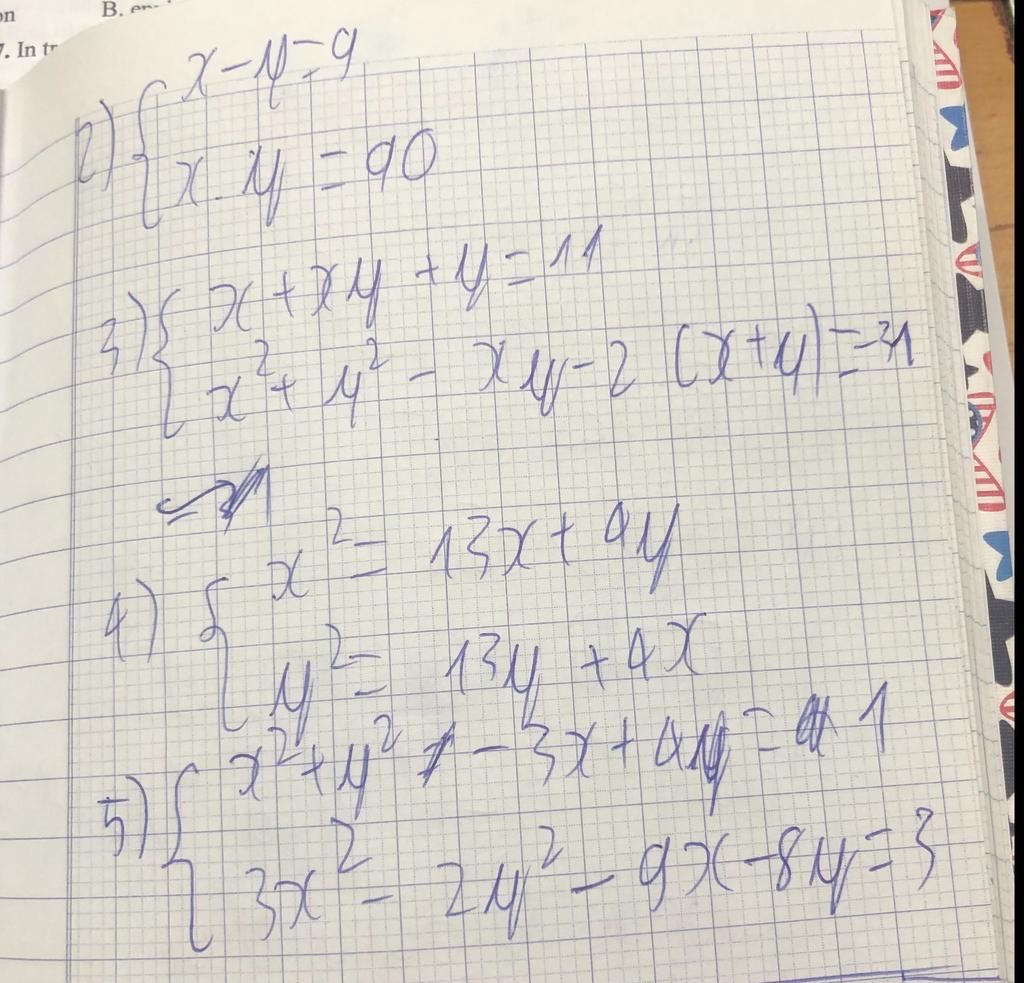 on
B.
7. In
2) { x - y = 9
x . y = 90
3) { x + xy + y = 11
x² + y² - xy - 2 (x + y) = -31
4) { x² = 13x + 4y
y² = 13y + 4x
5) { x² + y² - 3x + 4y = 1
3x² - 2y² - 9x - 8y = 3